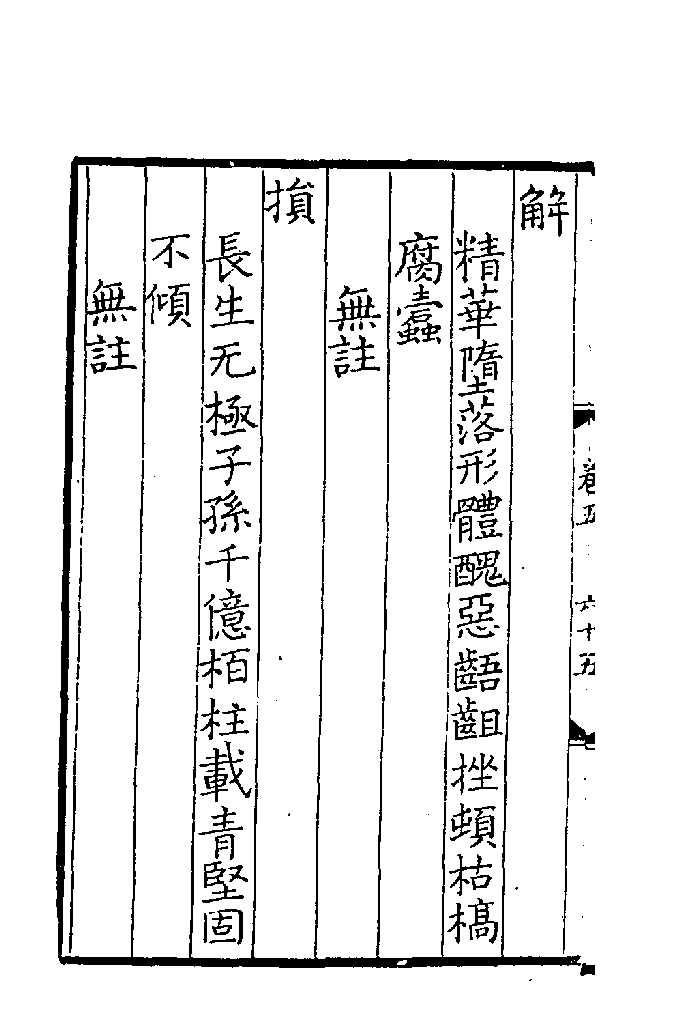 解
精華墮落形體醜惡齬齟挫頓枯槁
腐蠹
無註
損
長生无極子孫千億栢柱載青堅固
不傾
無註
卷五
六十五